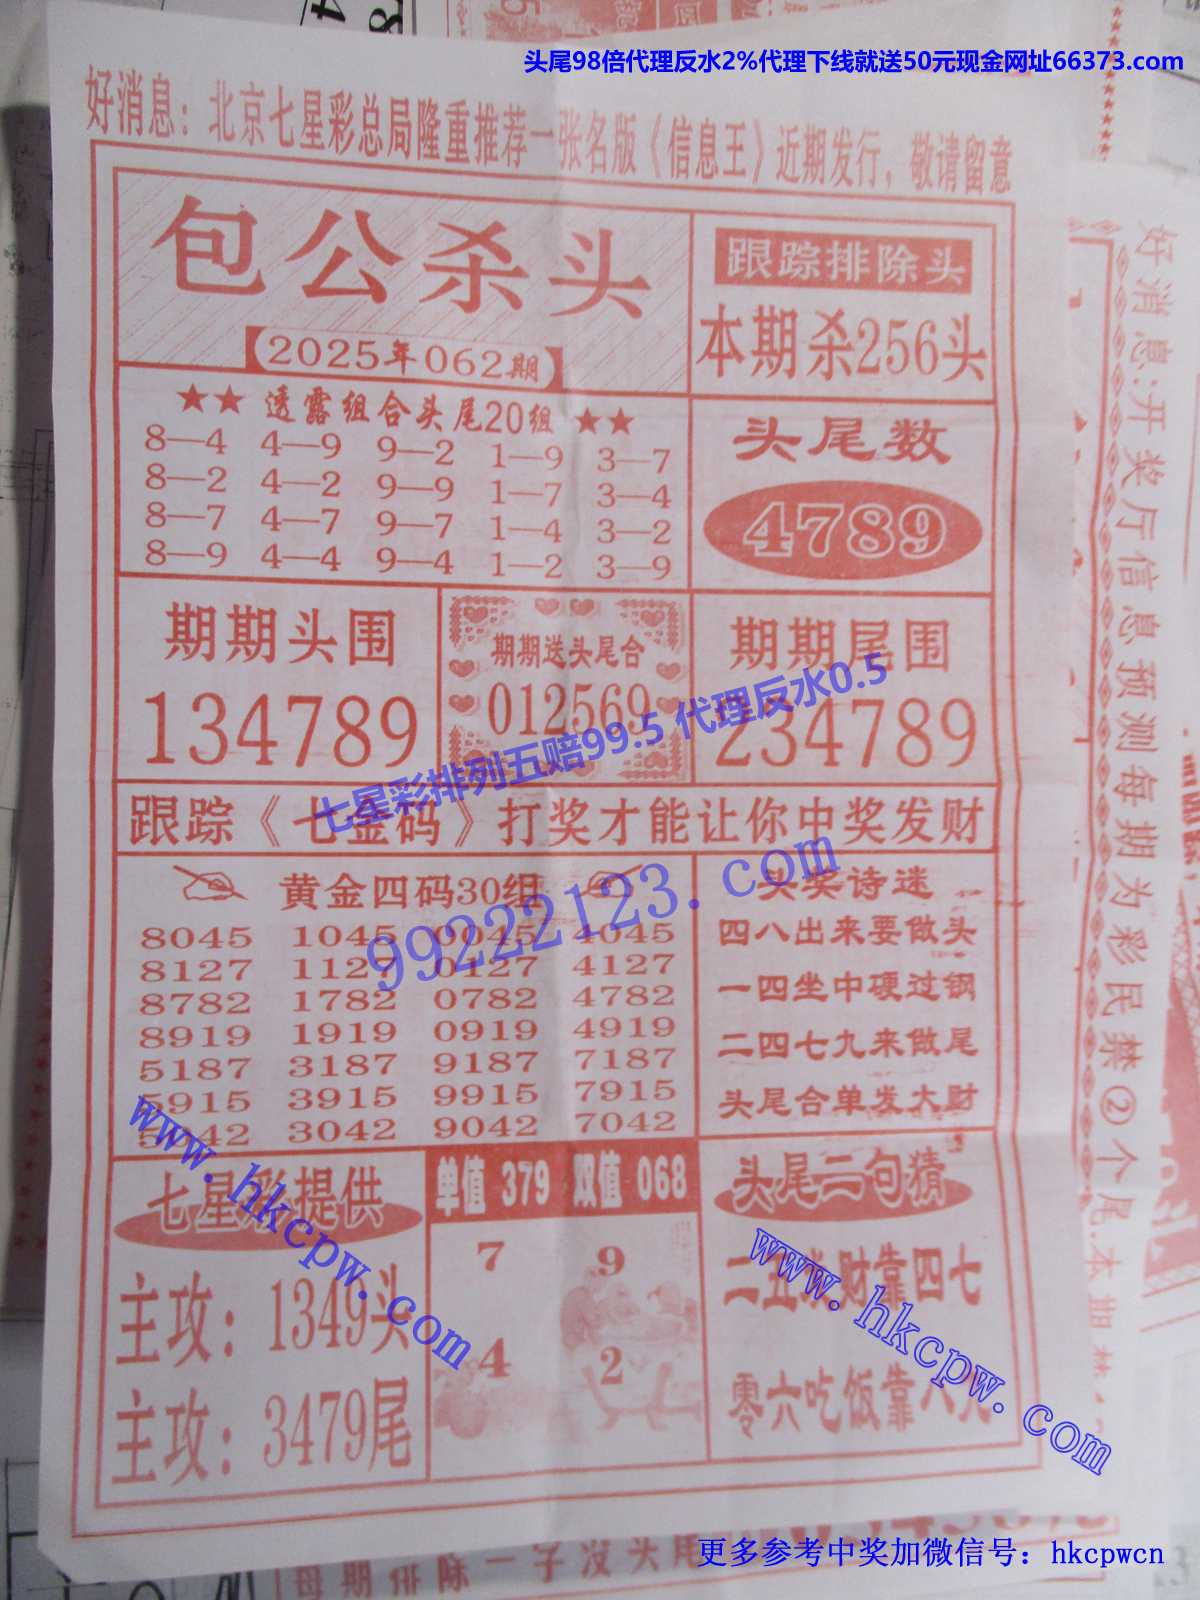 头尾98倍代理反水2%代理下线就送50元现金网址66373.com
好消息：北京七星彩总局隆重推荐一张名版《信息王》近期发行，敬请留意
包公杀头
【2025年062期】
跟踪排除头
本期杀256头
★★ 透露组合头尾20组 ★★
8—4 4—9 9—2 1—9 3—7
8—2 4—2 9—9 1—7 3—4
8—7 4—7 9—7 1—4 3—2
8—9 4—4 9—4 1—2 3—9
头尾数
4789
期期头围
134789
期期送头尾合
012569
期期尾围
234789
七星彩排列五赔99.5 代理反水0.5
跟踪《七金码》打奖才能让你中奖发财
黄金四码30组
8045 1045 0045 4045
8127 1127 0127 4127
8782 1782 0782 4782
8919 1919 0919 4919
5187 3187 9187 7187
5915 3915 9915 7915
5042 3042 9042 7042
99222123.com
头奖诗迷
四八出来要做头
一四坐中硬过钢
二四七九来做尾
头尾合单发大财
七星彩提供
主攻：1349头
主攻：3479尾
www.hkcpw.com
单值 379 双值 068
7 9
4 2
头尾二句猜
二五发财靠四七
零六吃饭靠八九
www.hkcpw.com
好消息:开奖厅信息预测每期为彩民禁②个尾.本期禁
每期排除一字没头尾
更多参考中奖加微信号：hkcpwcn